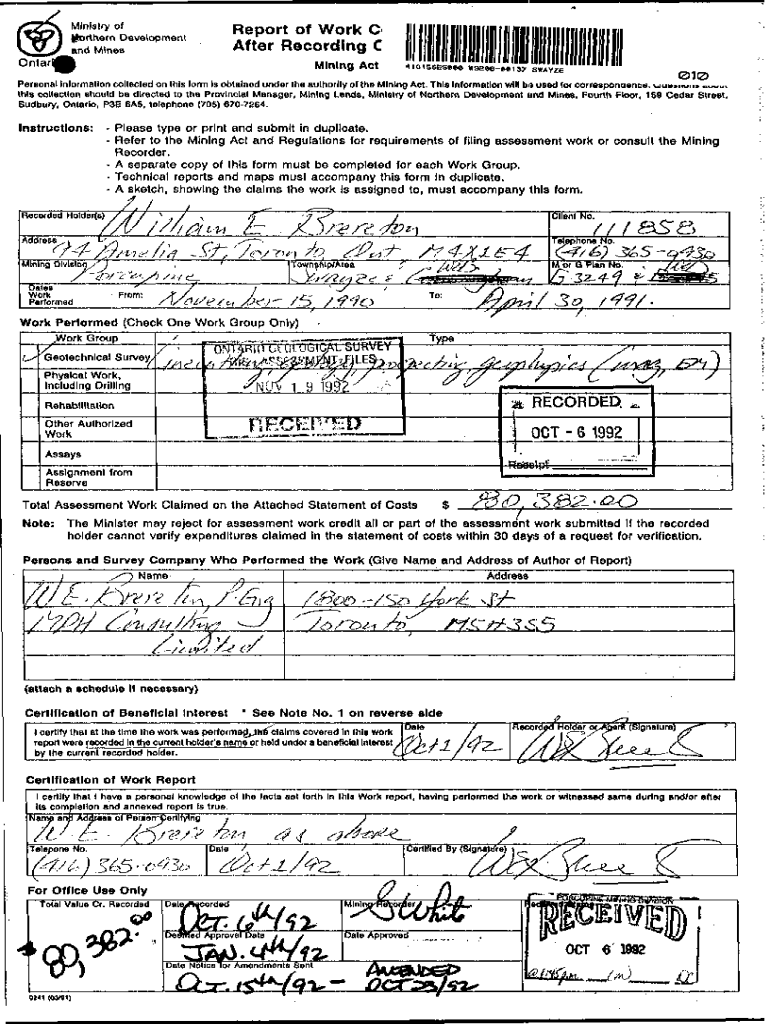 Ministry of
Northern Development
and Mines
Ontario
Report of Work C
After Recording C
Mining Act
010
Personal information collected on this form is obtained under the authority of the Mining Act. This information will be used for correspondence. Questions about
this collection should be directed to the Provincial Manager, Mining Lands, Ministry of Northern Development and Mines, Fourth Floor, 159 Cedar Street,
Sudbury, Ontario, P3E 6A5, telephone (705) 670-7264.
Instructions: - Please type or print and submit in duplicate.
- Refer to the Mining Act and Regulations for requirements of filing assessment work or consult the Mining
Recorder.
- A separate copy of this form must be completed for each Work Group.
- Technical reports and maps must accompany this form in duplicate.
- A sketch, showing the claims the work is assigned to, must accompany this form.
Recorded Holder(s)
William E Brereton
Client No.
111858
Address
94 Amelia St, Toronto Ont, M4X1E4
Telephone No.
(416) 365-0930
Mining Division
Porcupine
Township/Area
Swayze
M or G Plan No.
G 3249
Dates
Work
Performed
From: November 15, 1990
To: April 30, 1991.
Work Performed (Check One Work Group Only)
Work Group
Type
Geotechnical Survey
prospecting, geophysics (mag, EM)
Physical Work,
Including Drilling
Rehabilitation
Other Authorized
Work
Assays
Assignment from
Reserve
ONTARIO GEOLOGICAL SURVEY
ASSESSMENT FILES
NOV 19 1992
RECEIVED
RECORDED
OCT - 6 1992
Receipt
Total Assessment Work Claimed on the Attached Statement of Costs $ 80,382.00
Note: The Minister may reject for assessment work credit all or part of the assessment work submitted if the recorded
holder cannot verify expenditures claimed in the statement of costs within 30 days of a request for verification.
Persons and Survey Company Who Performed the Work (Give Name and Address of Author of Report)
Name
Address
W.E. Brereton, P.Eng
1800-150 York St
MPH Consulting
Toronto, M5H3S5
Limited
(attach a schedule if necessary)
Certification of Beneficial Interest * See Note No. 1 on reverse side
I certify that at the time the work was performed, the claims covered in this work
report were recorded in the current holder's name or held under a beneficial interest
by the current recorded holder.
Date
Oct 1/92
Recorded Holder or Agent (Signature)
Certification of Work Report
I certify that I have a personal knowledge of the facts set forth in this Work report, having performed the work or witnessed same during and/or after
its completion and annexed report is true.
Name and Address of Person Certifying
W. E. Brereton as above
Telepone No.
(416) 365-0930
Date
Oct 1/92
Certified By (Signature)
For Office Use Only
Total Value Cr. Recorded
$80,382.00
Date Recorded
OCT. 6th/92
Mining Recorder
S White
Deemed Approval Date
JAN. 4th/92
Date Approved
Date Notice for Amendments Sent
OCT. 15th/92 -
AMENDED
OCT 23/92
PORCUPINE MINING DIVISION
RECEIVED
OCT 6 1992
0241 (03/91)